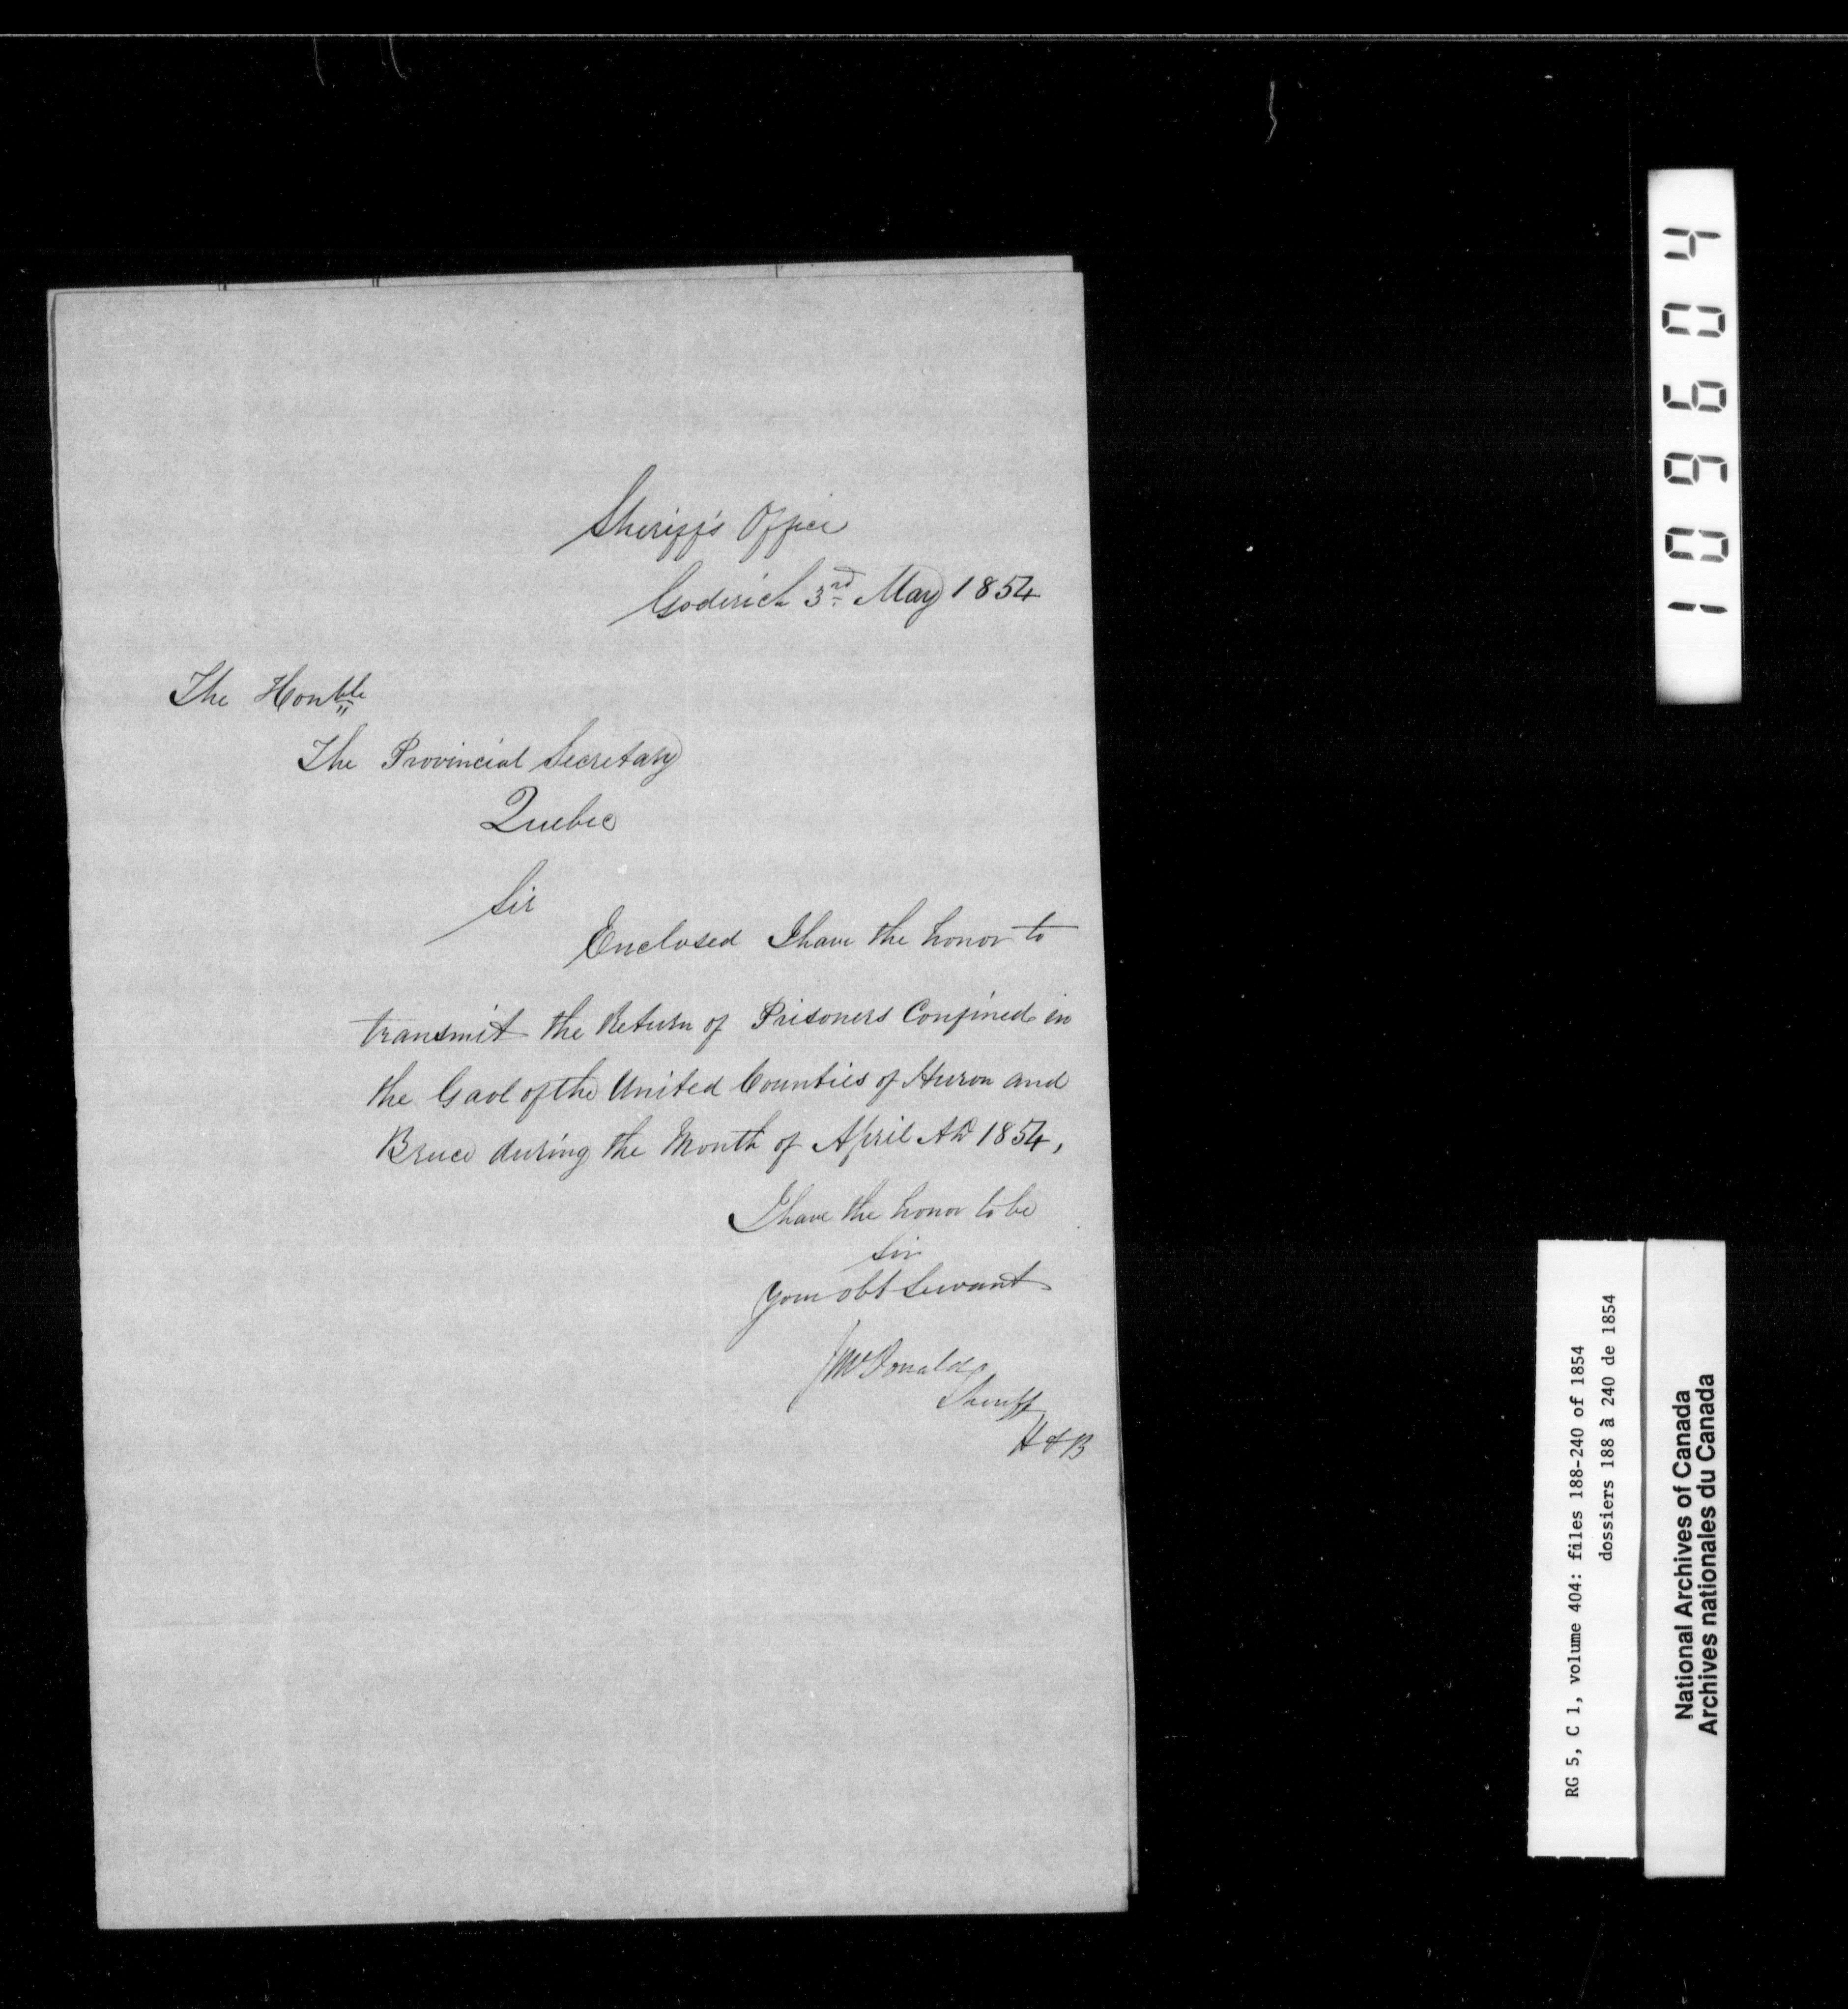 Sheriff's Office
Goderich 3rd May 1854
The Honble
The Provincial Secretary
Quebec
Sir
Enclosed I have the honor to
transmit the Return of Prisoners Confined in
the Gaol of the United Counties of Huron and
Bruce during the Month of April AD 1854,
I have the honor to be
Sir
Your obt Servant
J McDonald
Sheriff
H & B
109604
RG 5, C 1, volume 404: files 188-240 of 1854
dossiers 188 à 240 de 1854
National Archives of Canada
Archives nationales du Canada